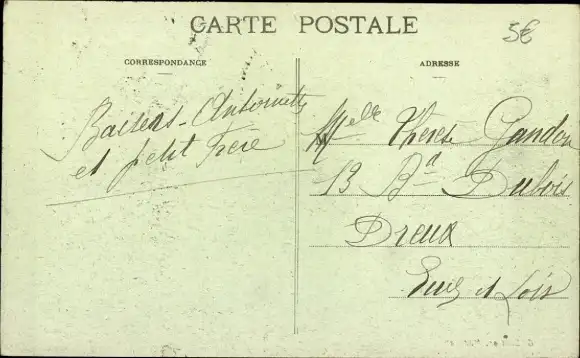 CARTE POSTALE
5€
CORRESPONDANCE
ADRESSE
Baisers - Antoinette
et petit Frère
Melle Thérèse Gandon
19 Bd Dubois
Dreux
Eure et Loir